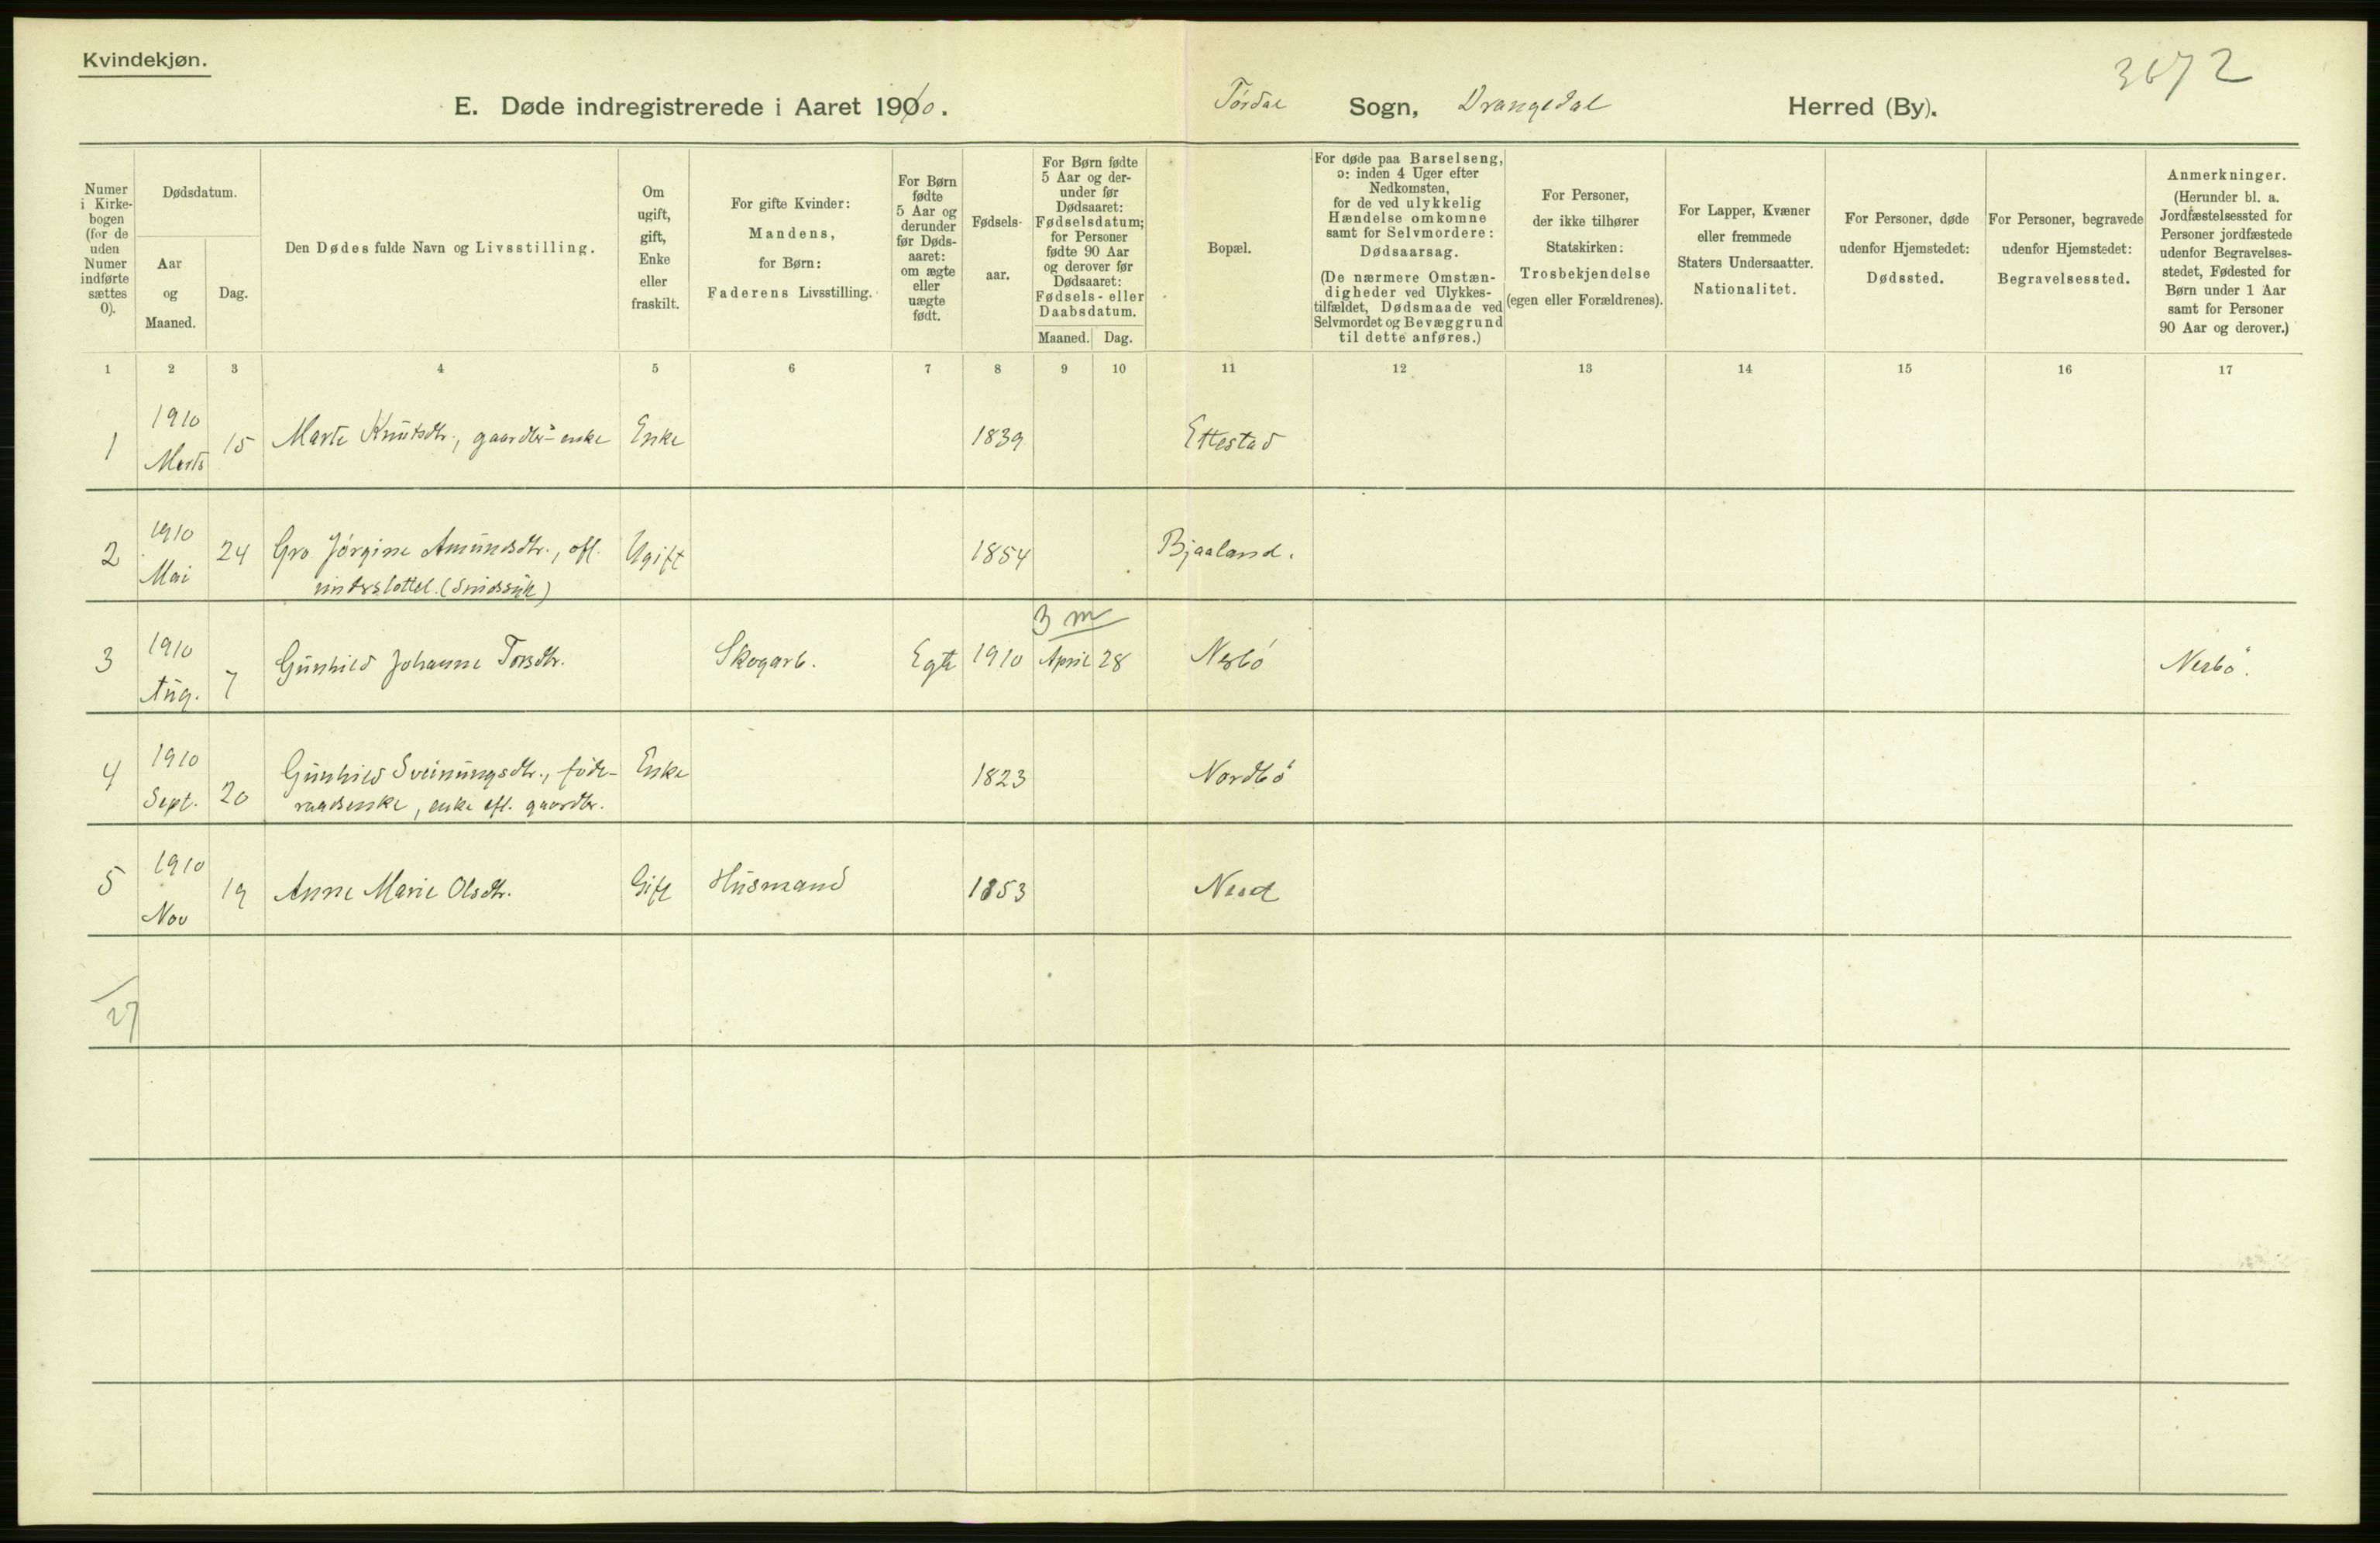 Kvindekjøn.
3672
E. Døde indregistrerede i Aaret 1910. Tørdal Sogn, Drangedal Herred (By).
Numer i Kirkebogen (for de uden Numer indførte sættes 0).
Dødsdatum.
Aar og Maaned.
Dag.
Den Dødes fulde Navn og Livsstilling.
Om ugift, gift, Enke eller fraskilt.
For gifte Kvinder: Mandens, for Børn: Faderens Livsstilling.
For Børn fødte 5 Aar og derunder før Dødsaaret: om ægte eller uægte født.
Fødselsaar.
For Børn fødte 5 Aar og derunder før Dødsaaret: Fødselsdatum; for Personer fødte 90 Aar og derover før Dødsaaret: Fødsels- eller Daabsdatum.
Maaned. Dag.
Bopæl.
For døde paa Barselseng, ɔ: inden 4 Uger efter Nedkomsten, for de ved ulykkelig Hændelse omkomne samt for Selvmordere: Dødsaarsag. (De nærmere Omstændigheder ved Ulykkestilfældet, Dødsmaade ved Selvmordet og Bevæggrund til dette anføres.)
For Personer, der ikke tilhører Statskirken: Trosbekjendelse (egen eller Forældrenes).
For Lapper, Kvæner eller fremmede Staters Undersaatter. Nationalitet.
For Personer, døde udenfor Hjemstedet: Dødssted.
For Personer, begravede udenfor Hjemstedet: Begravelsessted.
Anmerkninger. (Herunder bl. a. Jordfæstelsessted for Personer jordfæstede udenfor Begravelsesstedet, Fødested for Børn under 1 Aar samt for Personer 90 Aar og derover.)
1 2 3 4 5 6 7 8 9 10 11 12 13 14 15 16 17
1 1910 Marts 15 Marte Knutsdtr., gaardbr-enke Enke 1839 Ettestad
2 1910 Mai 24 Gro Jörgine Amundsdtr., ofl. Ugift 1854 Bjaaland.
understöttet.
3 m
3 1910 Aug. 7 Gunhild Johanne Torsdtr. Skogarb. Egte 1910 April 28 Nesbö Nesbö.
4 1910 Sept. 20 Gunhild Sveinungsdtr., föde- Enke 1823 Nordbö
raadsenke, enke eft. gaardbr.
5 1910 Nov 19 Anne Marie Olsdtr. Gift Husmand 1853
27